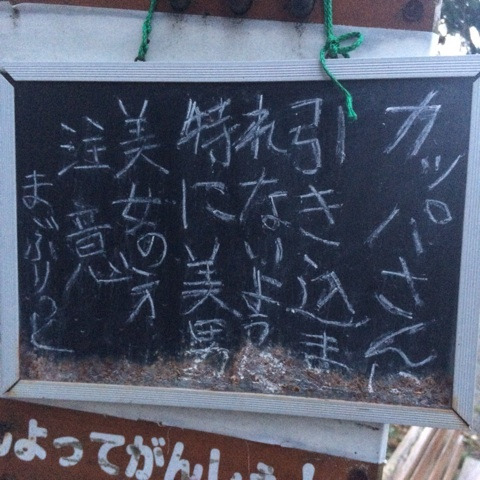 カッパさんに
引き込ま
れないよう
特に美男
美女の方
注意
まぶりっと
よってがんし